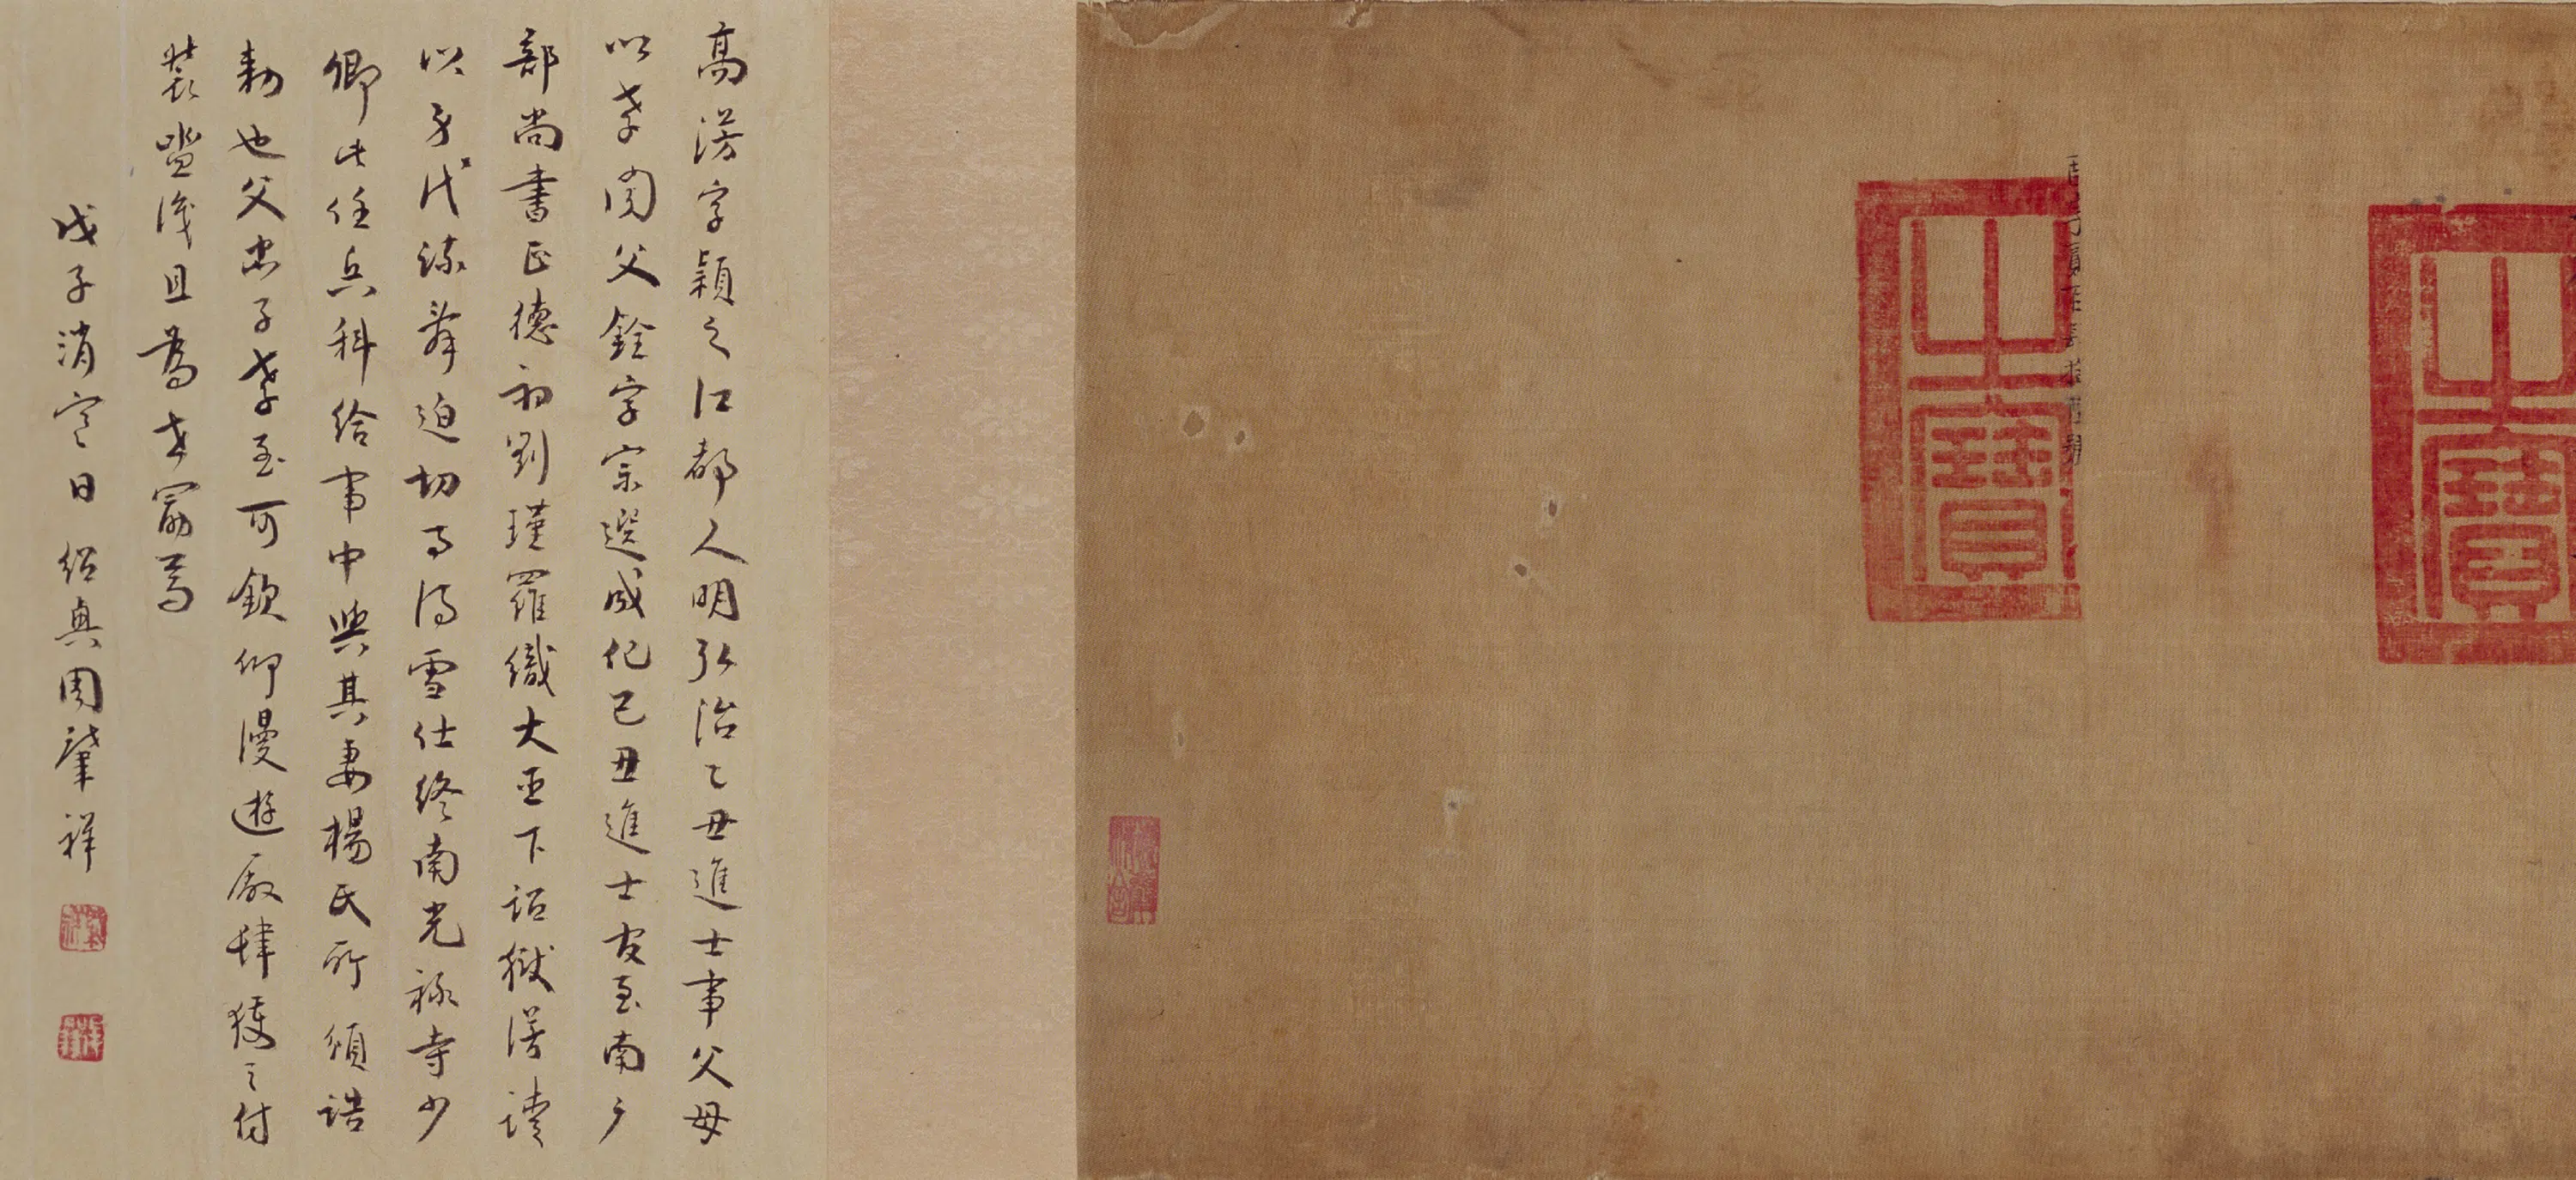 之寶
之寶
高滂字穎之江都人明弘治乙丑進士事父母
以孝聞父銓字宗選成化己丑進士官至南戶
部尚書正德初劉瑾羅織大臣下詔獄滂請
以身代疏辭迫切事得雪仕終南光祿寺少
卿此任兵科給事中與其妻楊氏所頒誥
勅也父忠子孝至可欽仰漫遊廠肆獲之付
裝且為世勗焉
戊子消寒日紹興周肇祥